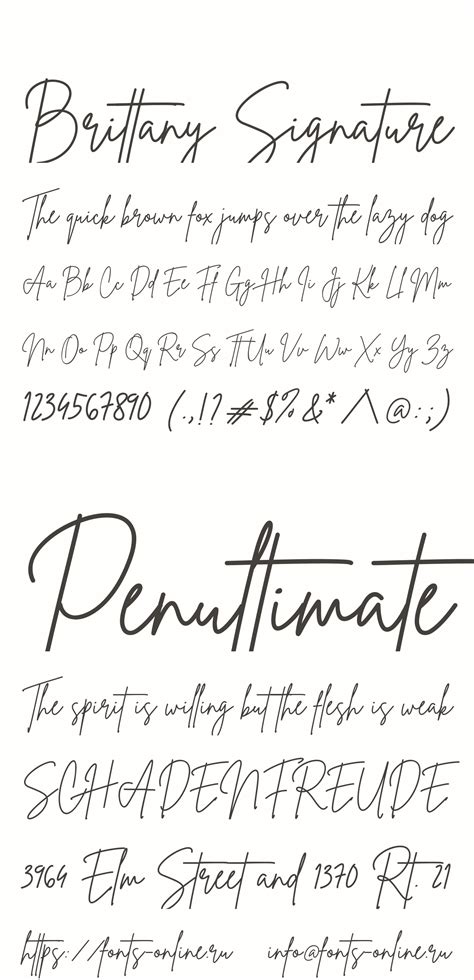 Brittany Signature
The quick brown fox jumps over the lazy dog
Aa Bb Cc Dd Ee Ff Gg Hh Ii Jj Kk Ll Mm
Nn Oo Pp Qq Rr Ss Tt Uu Vv Ww Xx Yy Zz
1234567890 (.,!? # $% &* /\ @:;)
Penultimate
The spirit is willing but the flesh is weak
SCHADENFREUDE
3964 Elm Street and 1370 Rt. 21
https://fonts-online.ru info@fonts-online.ru